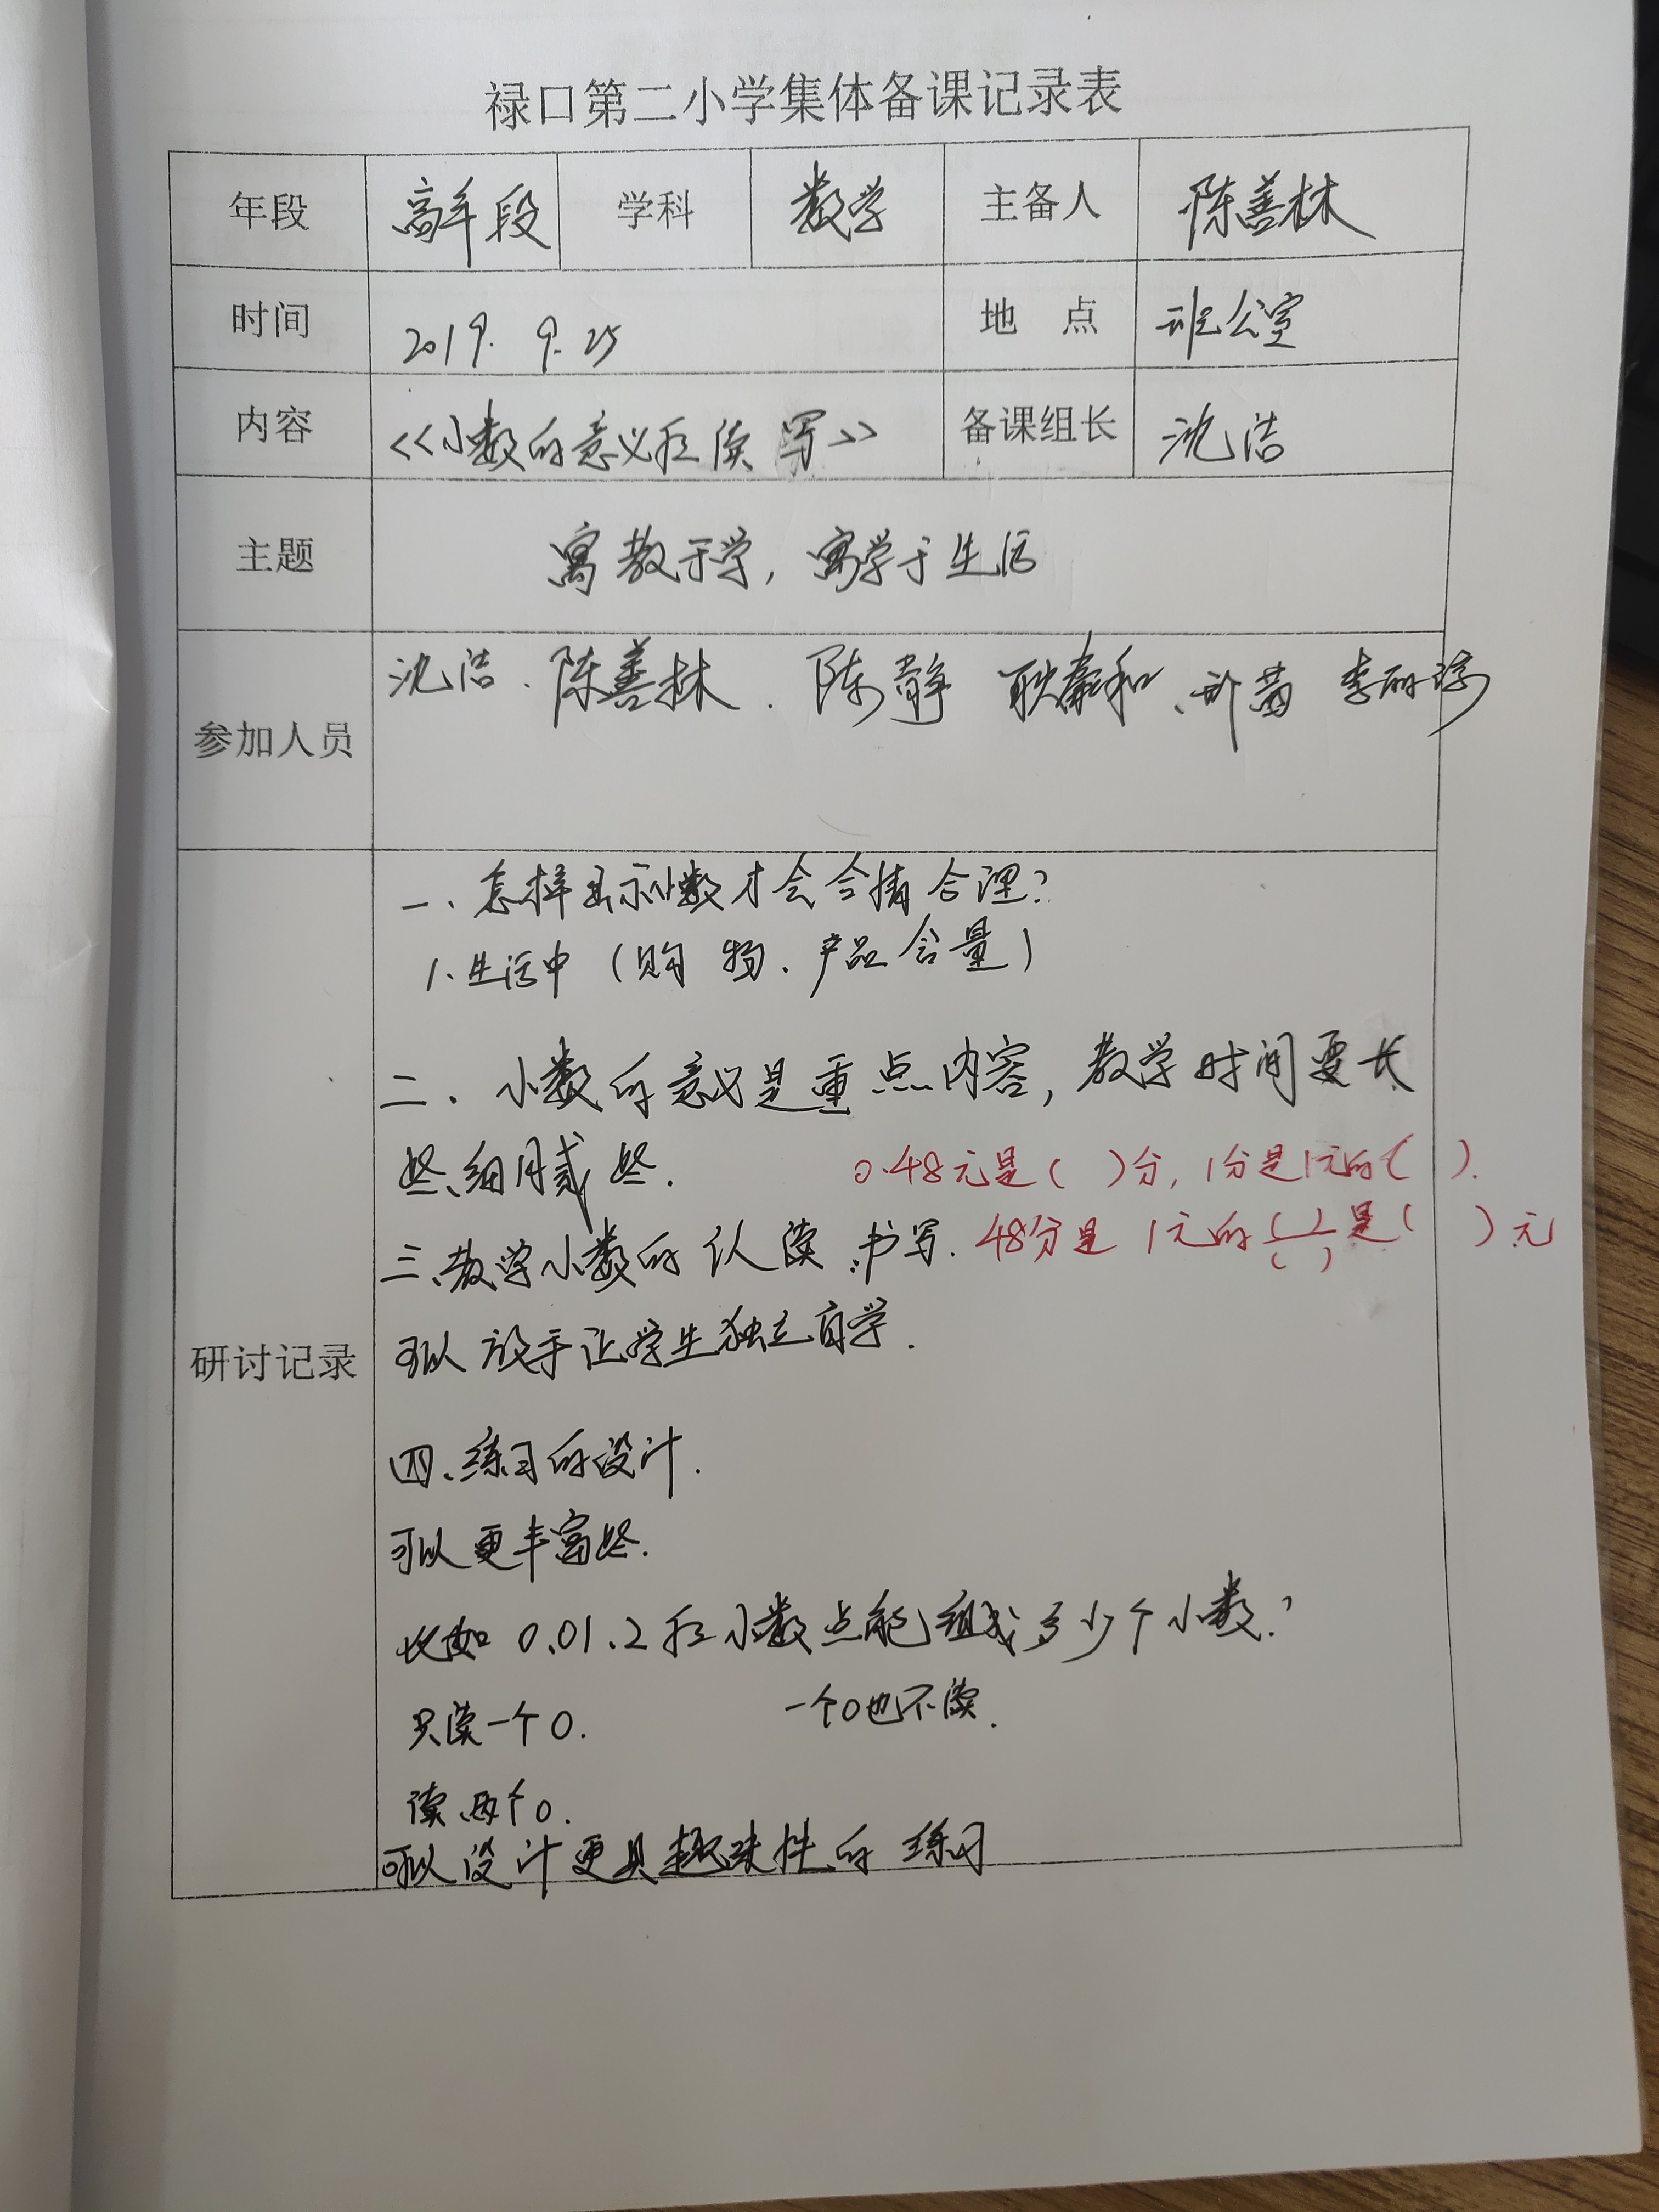 禄口第二小学集体备课记录表
年段 高年段 学科 数学 主备人 陈善林
时间 2019. 9. 25 地 点 办公室
内容 <<小数的意义和读写>> 备课组长 沈洁
主题 寓教于学，寓学于生活
参加人员 沈洁、陈善林、陈静 李丽
研讨记录
一、怎样出示小数才会合情合理？
1、生活中（购物、产品含量）
二、小数的意义是重点内容，教学时间要长
些，细腻些.
0.48元是( )分，1分是1元的( ).
三、教学小数的认读、书写.
48分是1元的( )/( )是( )元
可以放手让学生独立自学.
四、练习的设计.
可以更丰富些.
比如 0.01.2和小数点能组成多少个小数？
只读一个0. 一个0也不读.
读两个0.
可以设计更具趣味性的练习